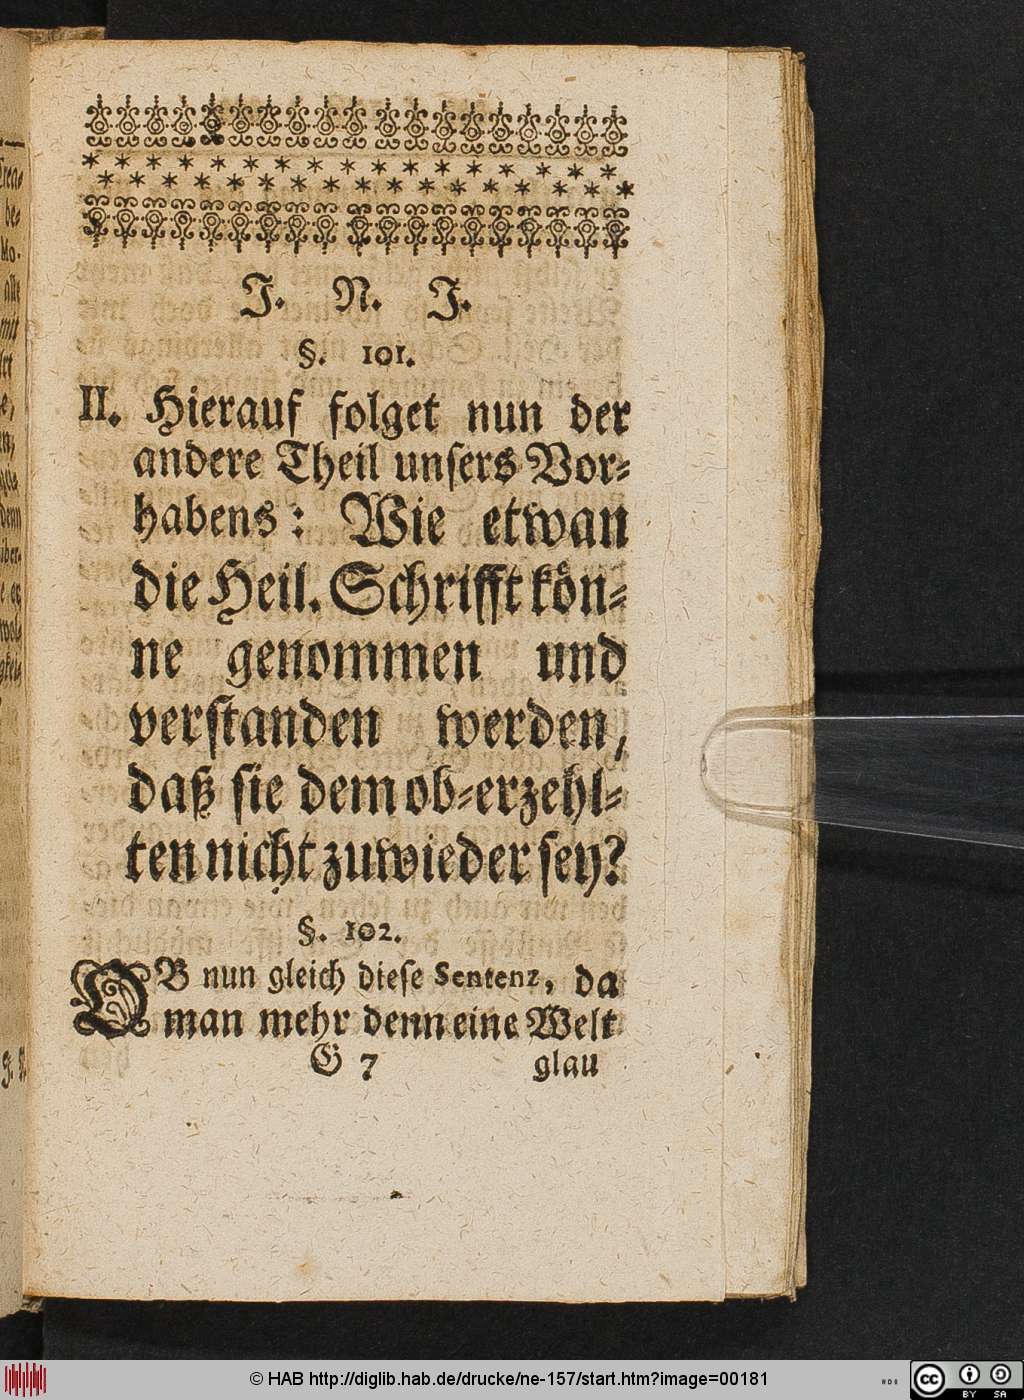 J. N. J.
§. 101.
II. Hierauf folget nun der
andere Theil unsers Vor-
habens: Wie etwan
die Heil. Schrifft kön-
ne genommen und
verstanden werden,
daß sie dem ob-erzehl-
ten nicht zuwieder sey?
§. 102.
OB nun gleich diese Sentenz, da
man mehr denn eine Welt
G 7 glau
© HAB http://diglib.hab.de/drucke/ne-157/start.htm?image=00181